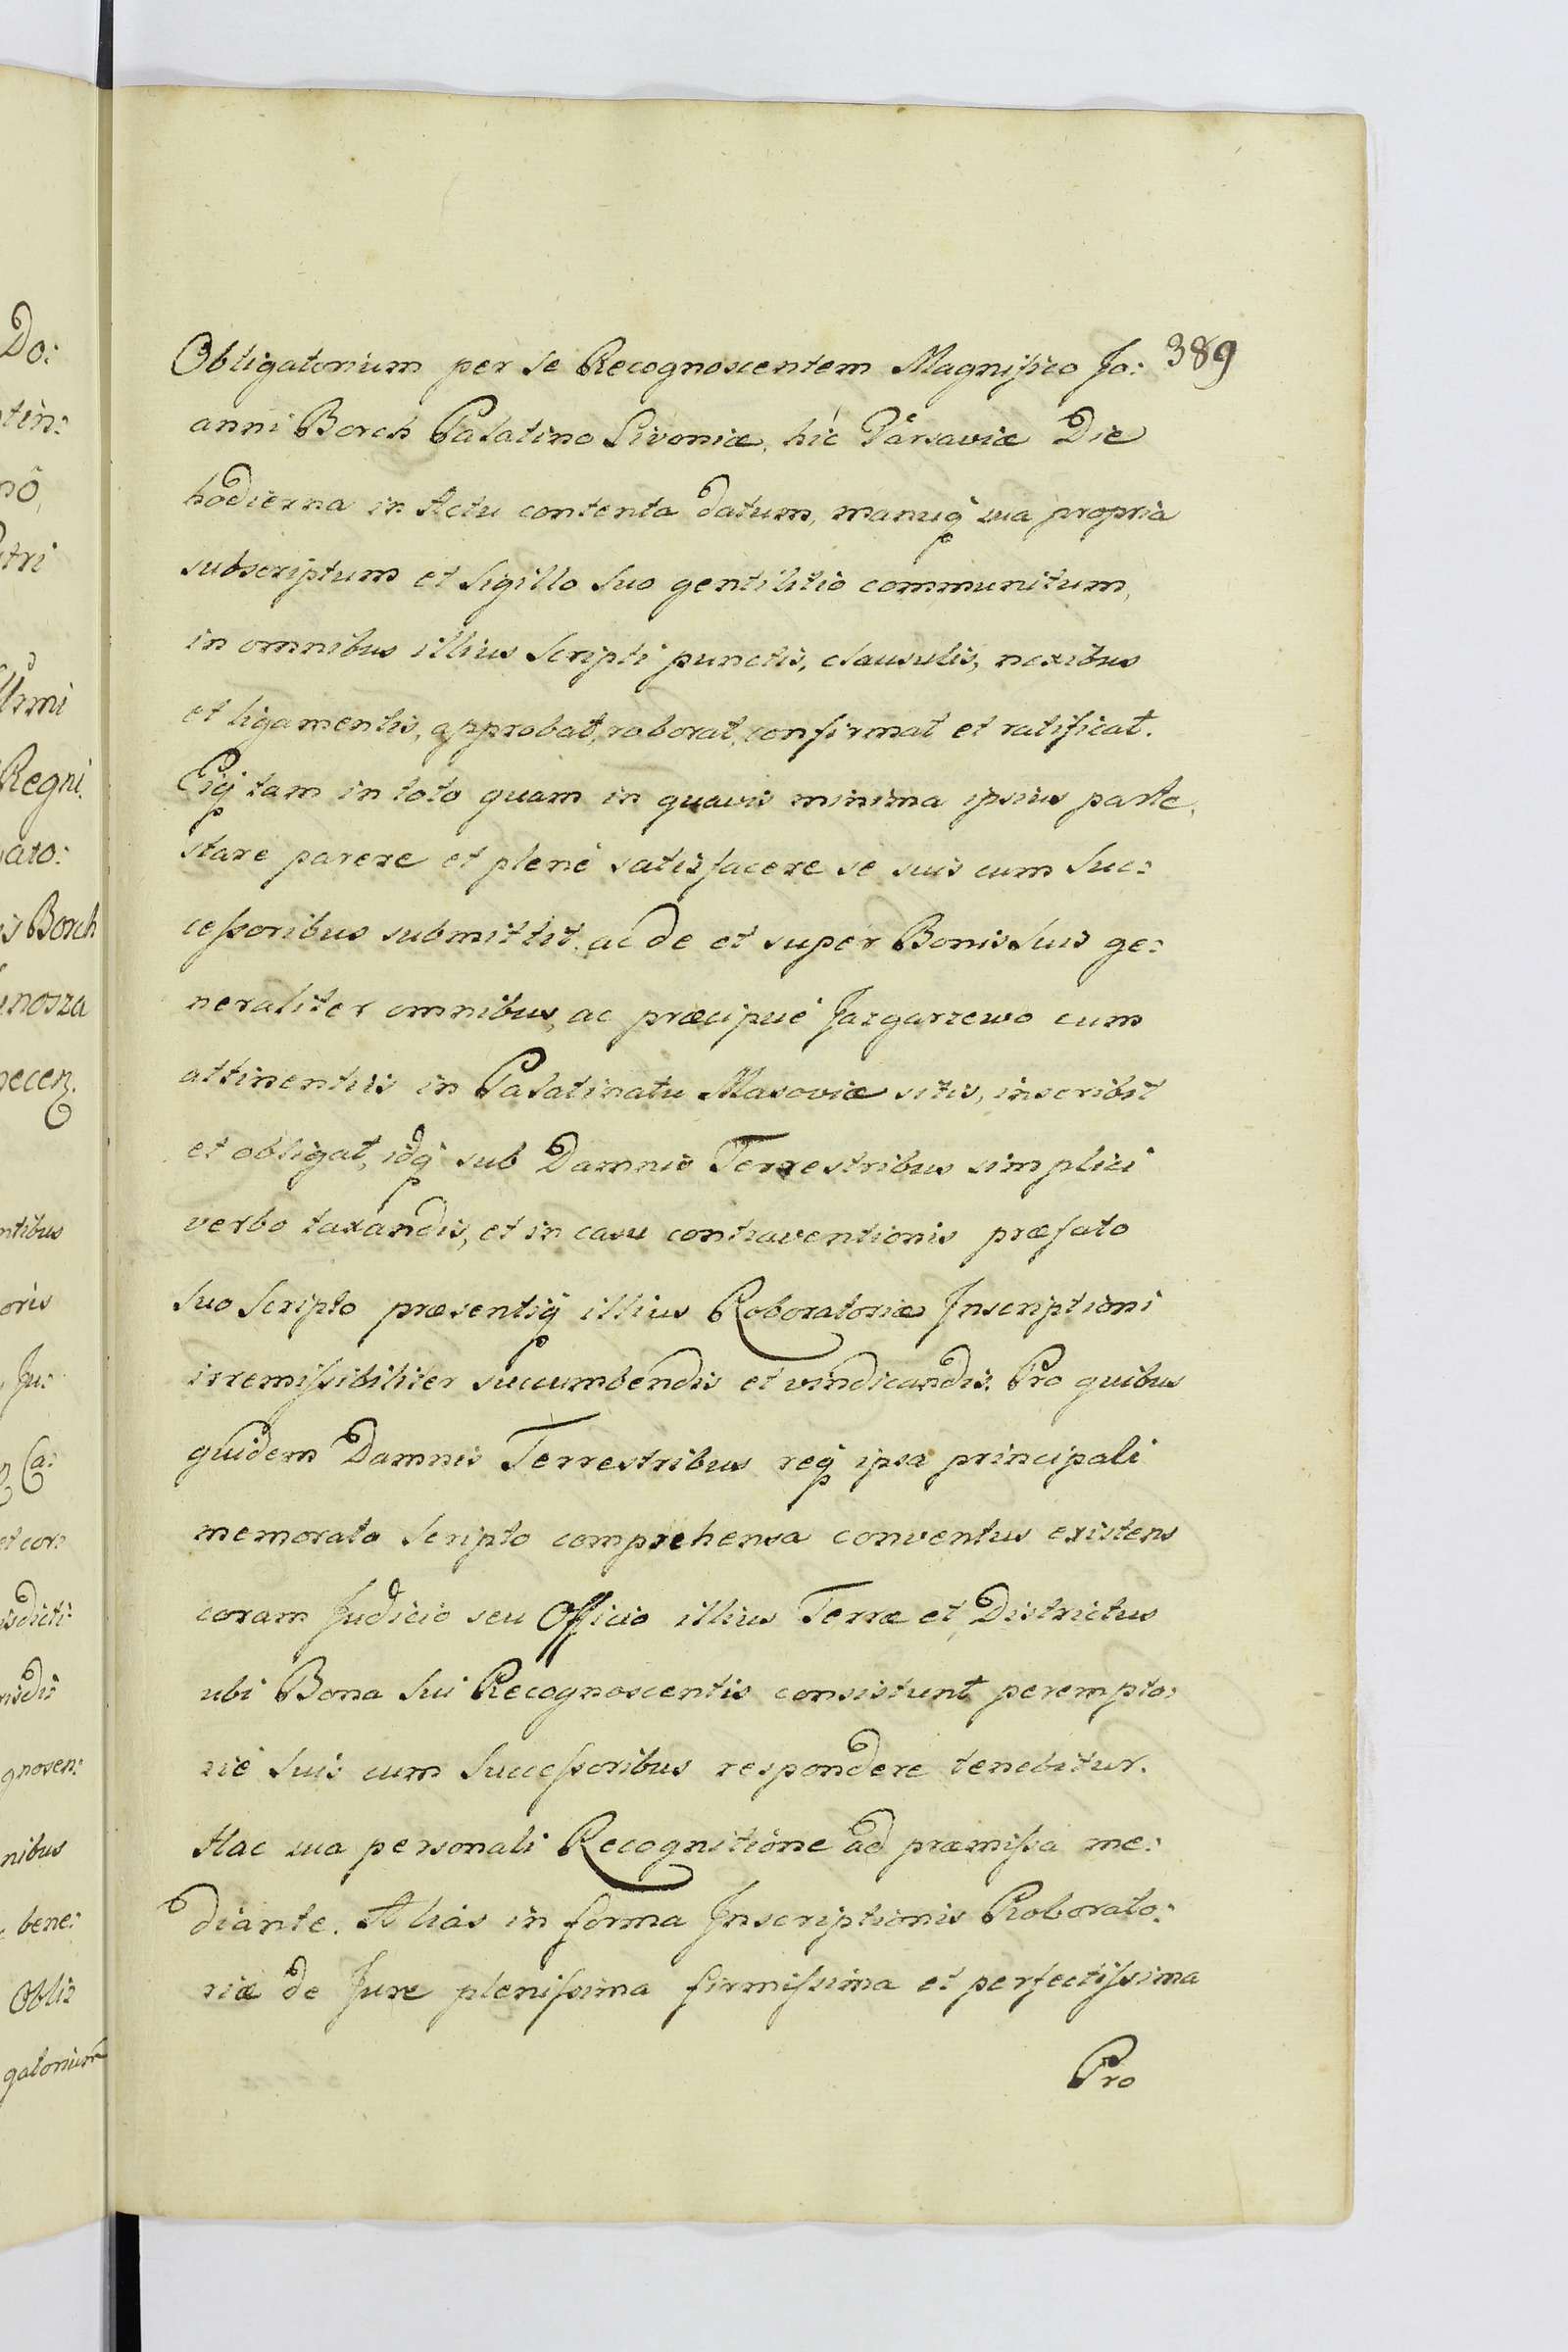 Do:
tin:
nô,
utri
Urmi
Regni.
ato:
is Borch
inosza
ntibus
oris
Ju:
Ca:
et cor:
isdicti:
risdi:
gnoscen:
nibus
bene:
Obli:
gatorium
389
Obligatorium per se Recognoscentem Magnifico Jo:
anni Borch Palatino Livoniæ, hic Varsaviæ Die
hodierna in Actu contenta datum, manuq̃ sua propria
subscriptum et Sigillo Suo gentilitio communitum,
in omnibus illius Scripti punctis, clausulis, nexibus
et ligamentis, approbat, roborat, confirmat et ratificat.
Eiq̃ tam in toto quam in quavis minima ipsius parte,
stare parere et plenè satisfacere se suis cum Suc:
ceſsoribus submittit, ac de et super Bonis Suis ge:
neraliter omnibus, ac præcipuè Jazgarzewo cum
attinentiis in Palatinatu Masoviæ sitis, inscribit
et obligat, idq̃ sub Damnis Terrestribus simplici
verbo taxandis, et in casu contraventionis præfato
Suo Scripto præsentiq̃ illius Roboratoriæ Inscriptioni
irremiſsibiliter succumbendis et vindicandis. Pro quibus
quidem Damnis Terrestribus req̃ ipsa principali
memorato Scripto comprehensa conventus existens
coram Judicio seu Officio illius Terræ et Districtus
ubi Bona Sui Recognoscentis consistunt perempto:
riè Suis cum Succeſsoribus respondere tenebitur.
Hac sua personali Recognitione ad præmiſsa me:
diante. Aliàs in forma Inscriptionis Roborato:
riæ de Jure pleniſsima firmiſsima et perfectiſsima
Pro